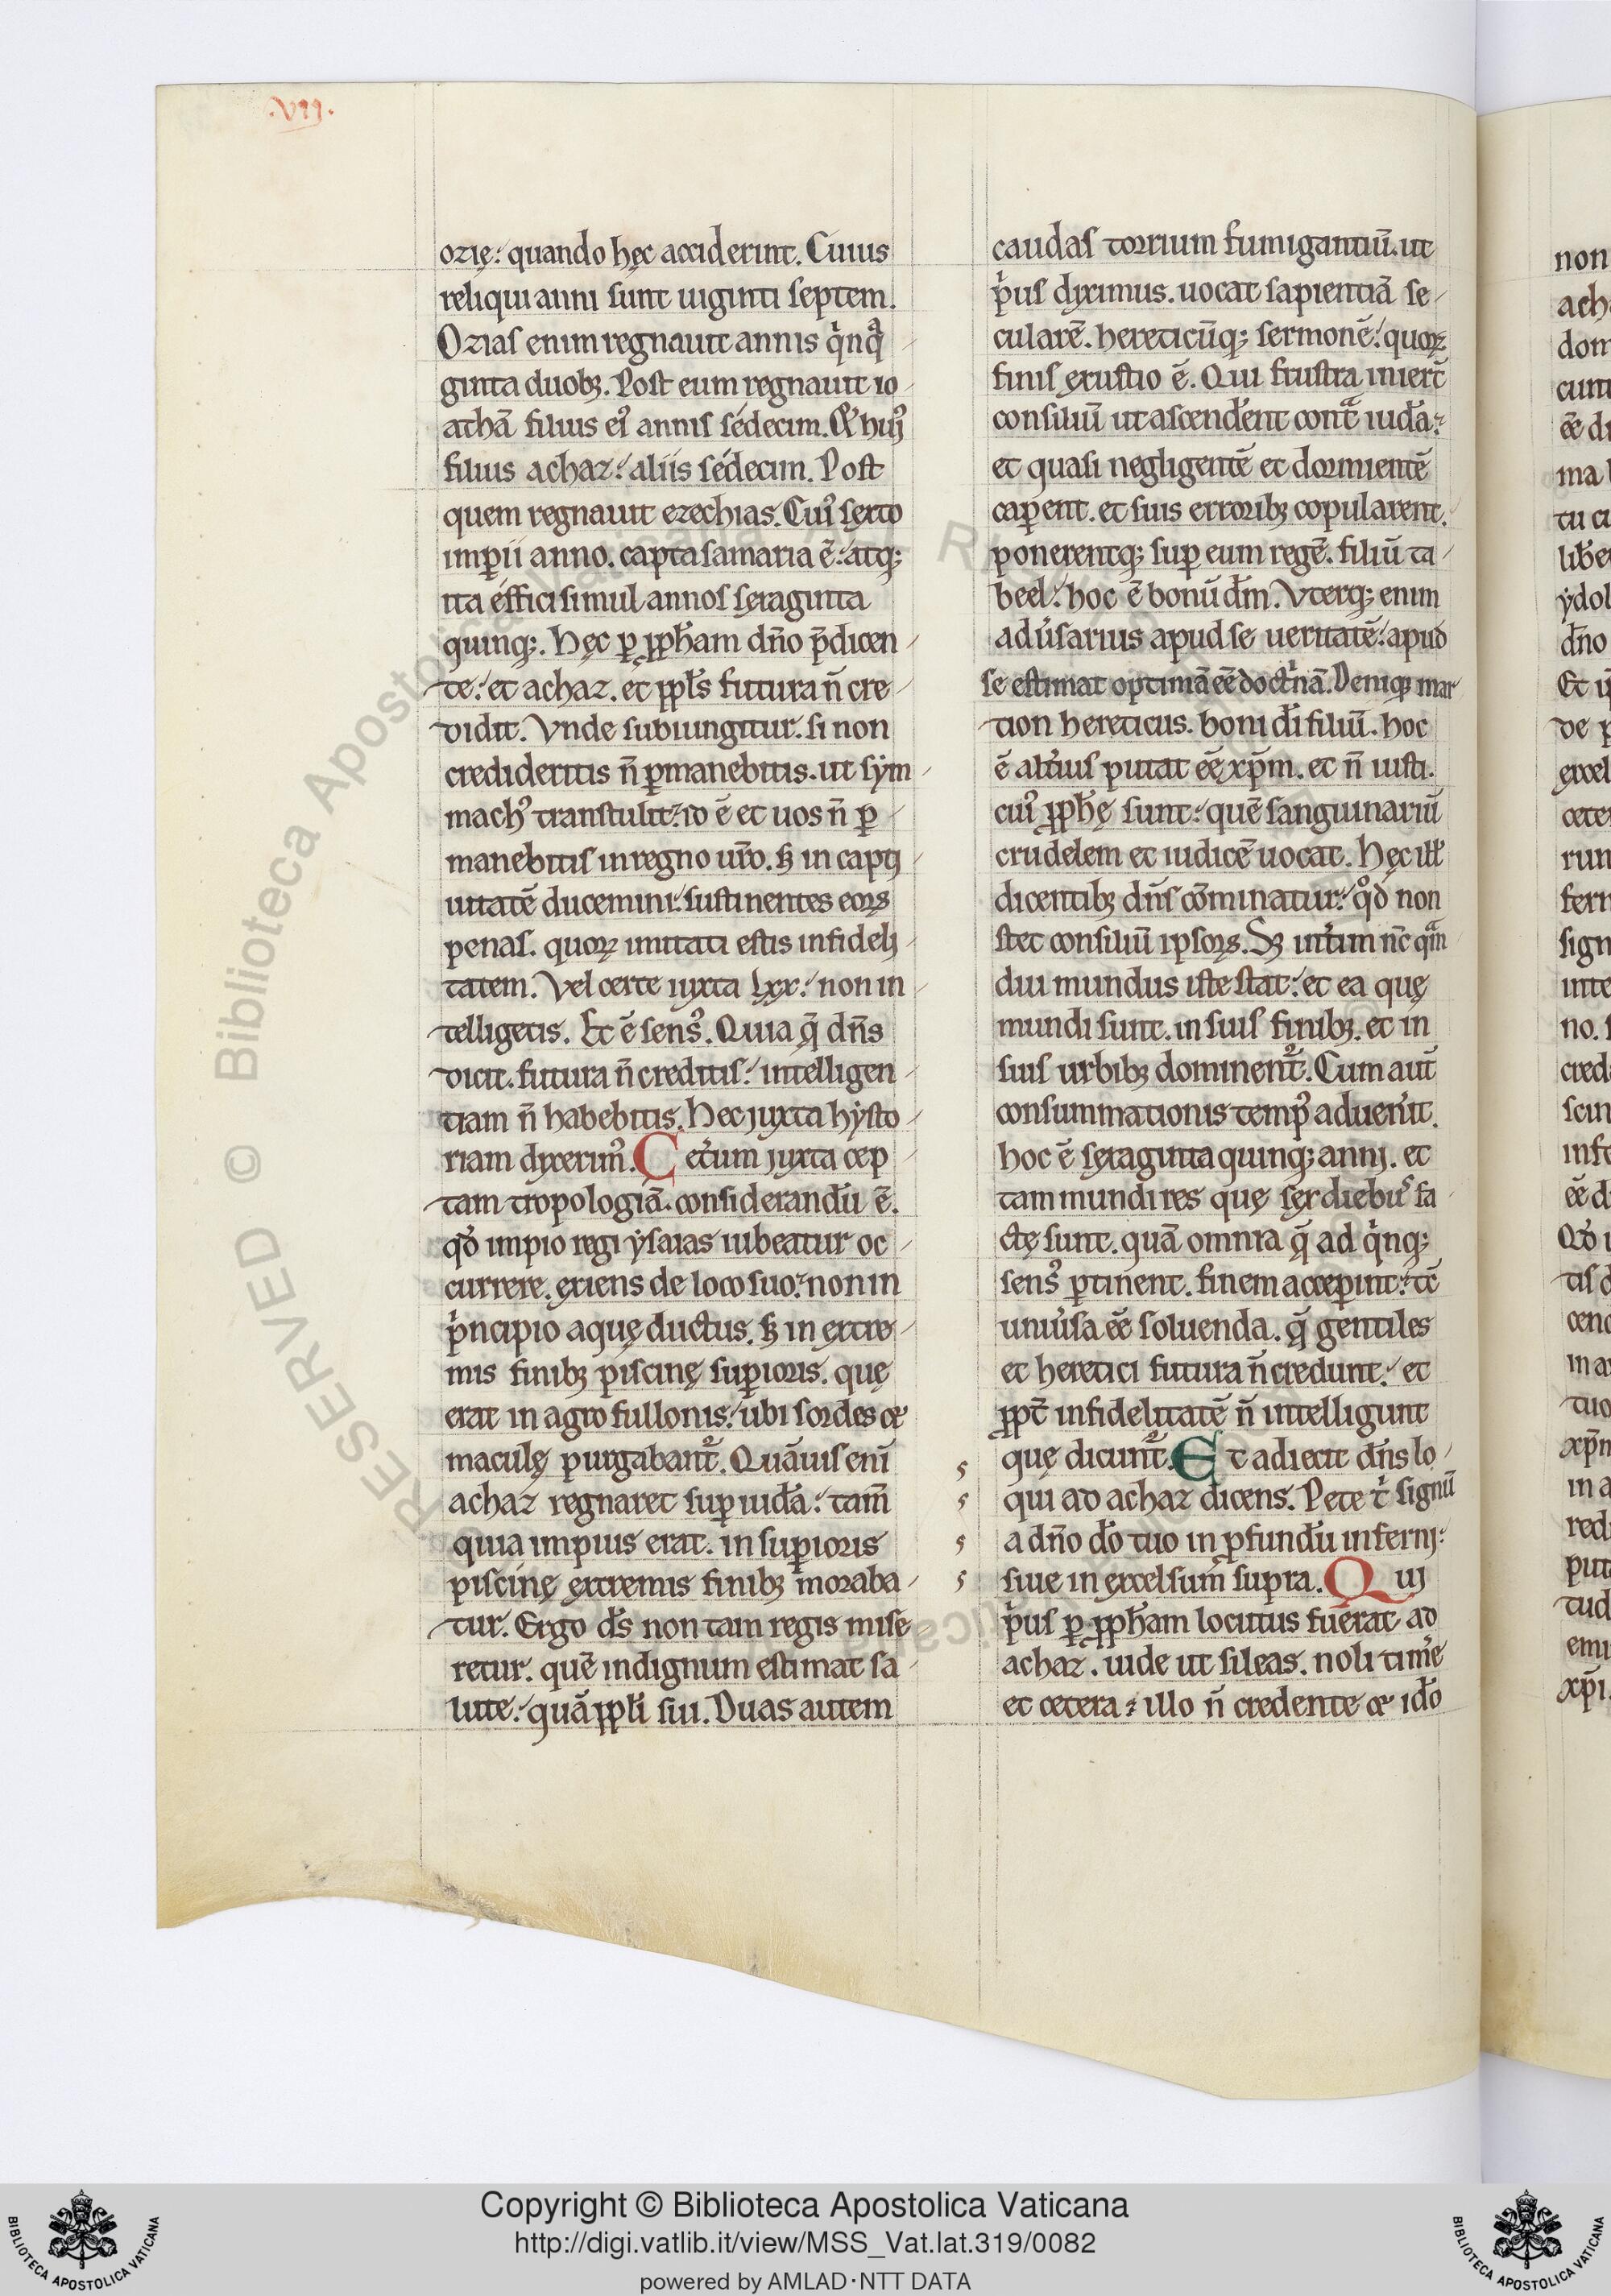 .VIJ.
ozię: quando hęc acciderint. Cuius
reliqui anni sunt uiginti septem.
Ozias enim regnauit annis q̍nqᷓ
ginta duobꝫ. Post eum regnauit io
athā filius ei᷒ annis sédecim. Et hui᷒
filius achaz: aliis sédecim. Post
quem regnauit ezechias. Cui᷒ sexto
imꝑii anno. capta samaria ē: atqꝫ
ita éffici simul annos sexaginta
quinqꝫ. Hęc ꝑ ꝓph̄am dn̄o p̄dicen
te: et achaz. et ppl̄s futura n̄ cre
didit. Vnde subiungitur. si non
credideritis n̄ ꝑmanebitis. ut sẏm
mach᷒ transtulit: id ē et uos n̄ ꝑ
manebitis in regno ur̄o. sꝫ in capti
uitatē ducemini: sustinentes eoꝝ
penas. quoꝝ imitati estis infideli
tatem. Vel certe iuxta lxx: non in
telligetis. Et ē sens᷒. Quia q̄ dn̄s
dicit. futura n̄ creditis: intelligen
tiam n̄ habebitis. Hec juxta hẏsto
riam dixerim᷒. Cet̾um juxta cep
tam tropologiā. considerandū ē.
qd̄ impio regi ẏsaias iubeatur oc
currere. exiens de loco suo: non in
p̍ncipio aquę ductus. sꝫ in extre
mis finibꝫ piscinę suꝑioris. quę
erat in agro fullonis: ubi sordes et
maculę purgabant᷑. Quāuis enī
achaz regnaret suꝑ iudā: tam̄
quia impius erat. in suꝑioris
piscinę extremis finibꝫ moraba
tur. Ergo ds̄ non tam regis mise
retur. quē indignum estimat sa
lute: quā ppl̄i sui. Duas autem
caudas torrium fumigantiū. ut
p̍us diximus. uocat sapientiā se
cularē. hereticūqꝫ sermonē: quoꝝ
finis exustio ē. Qui frustra inier̄t
consiliū ut ascender̄ent contᷓ iudā:
et quasi negligentē et dormientē
caꝑent. et suis erroribꝫ copularent.
ponerentqꝫ suꝑ eum regē. filiū ta
beel: hoc ē bonū dm̄. Vterqꝫ enim
adu̾sarius apud se ueritatē: apud
se estimat optimā eē doct̍nā. Deniqꝫ mar
tion hereticus. boni dī filiū. hoc
ē alt̾ius putat eē xp̄m. et n̄ iusti.
cui᷒ ꝓph̄ę sunt: quē sanguinariū
crudelem et iudicē uocat. Hęc ill̄
dicentibꝫ dn̄s cōminatur: qd̊ non
stet consiliū ipsoꝝ. Sꝫ int̾im nc̄ qᷓm
diu mundus iste stat: et ea quę
mundi sunt. in suis finibꝫ. et in
suis urbibꝫ dominent᷑. Cum aut̄
consummationis temp᷒ aduen̾it.
hoc ē sexaginta quinqꝫ anni. et
tam mundi res quę sex diebus fa
ctę sunt. quā omnia q̄ ad q̍nqꝫ
sens᷒ ꝑtinent. finem acceꝑint: tc̄
uniu̾sa eē soluenda. q̄ gentiles
et heretici futura n̄ credunt: et
ꝓpt̄ infidelitatē n̄ intelligunt
quę dicunt᷑. Et adiecit dn̄s lo
qui ad achaz dicens. Pete t̍ signū
a dn̄o dō tuo in ꝓfundū inferni:
siue in excelsum supra. Qui
p̍us ꝑ ꝓph̄am locutus fuerat ad
achaz. uide ut sileas. noli tim̾e
et cetera: illo n̄ credente et idō
Copyright © Biblioteca Apostolica Vaticana
http://digi.vatlib.it/view/MSS_Vat.lat.319/0082
powered by AMLAD·NTT DATA